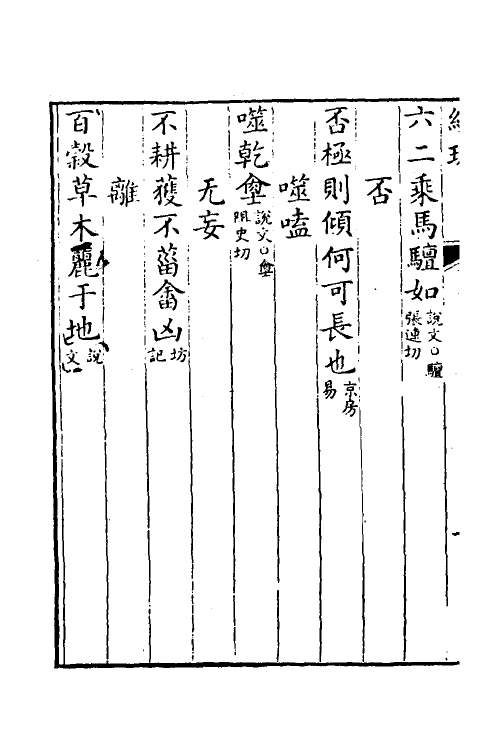 六二乘馬驙如說文〇驙張連切
否
否極則傾何可長也京房易
噬嗑
噬乾說文〇阻史切
无妄
不耕獲不菑畬凶坊記
離
百穀草木麗于地說文